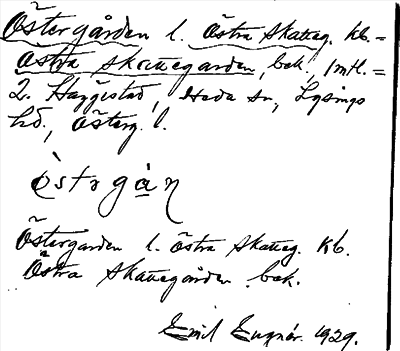 Östergården l. Östra Skatteg. kb. =
Östra Skattegården, bek., jmtl. =
2. Haggestad, Heda sn, Lysings
hd., Österg. l.
òstərgàɳ
Östergården l. Östra Skatteg. kb.
Östra Skattegården bek.
Emil 1929.